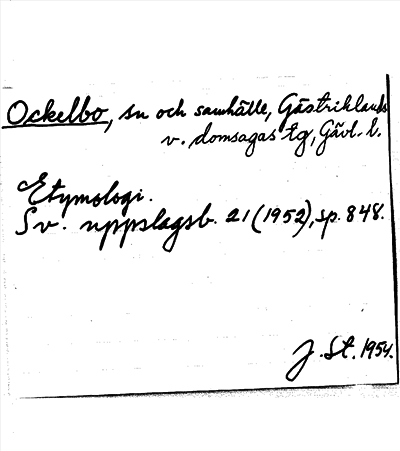 Ockelbo, sn och samhälle, Gästriklands
v. domsagas tg, Gävl. l.
Etymologi.
Sv. uppslagsb. 21 (1952), sp. 848.
J. St. 1954.